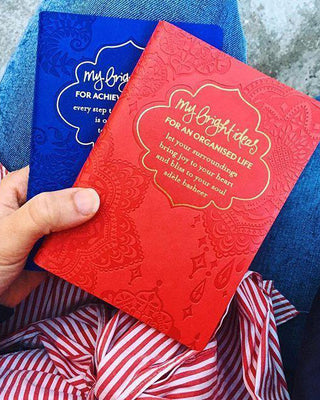 My brigh
FOR ACHIE
every step t
is o
My bright ideas
FOR AN ORGANISED LIFE
let your surroundings
bring joy to your heart
and bliss to your soul
adèle basheer